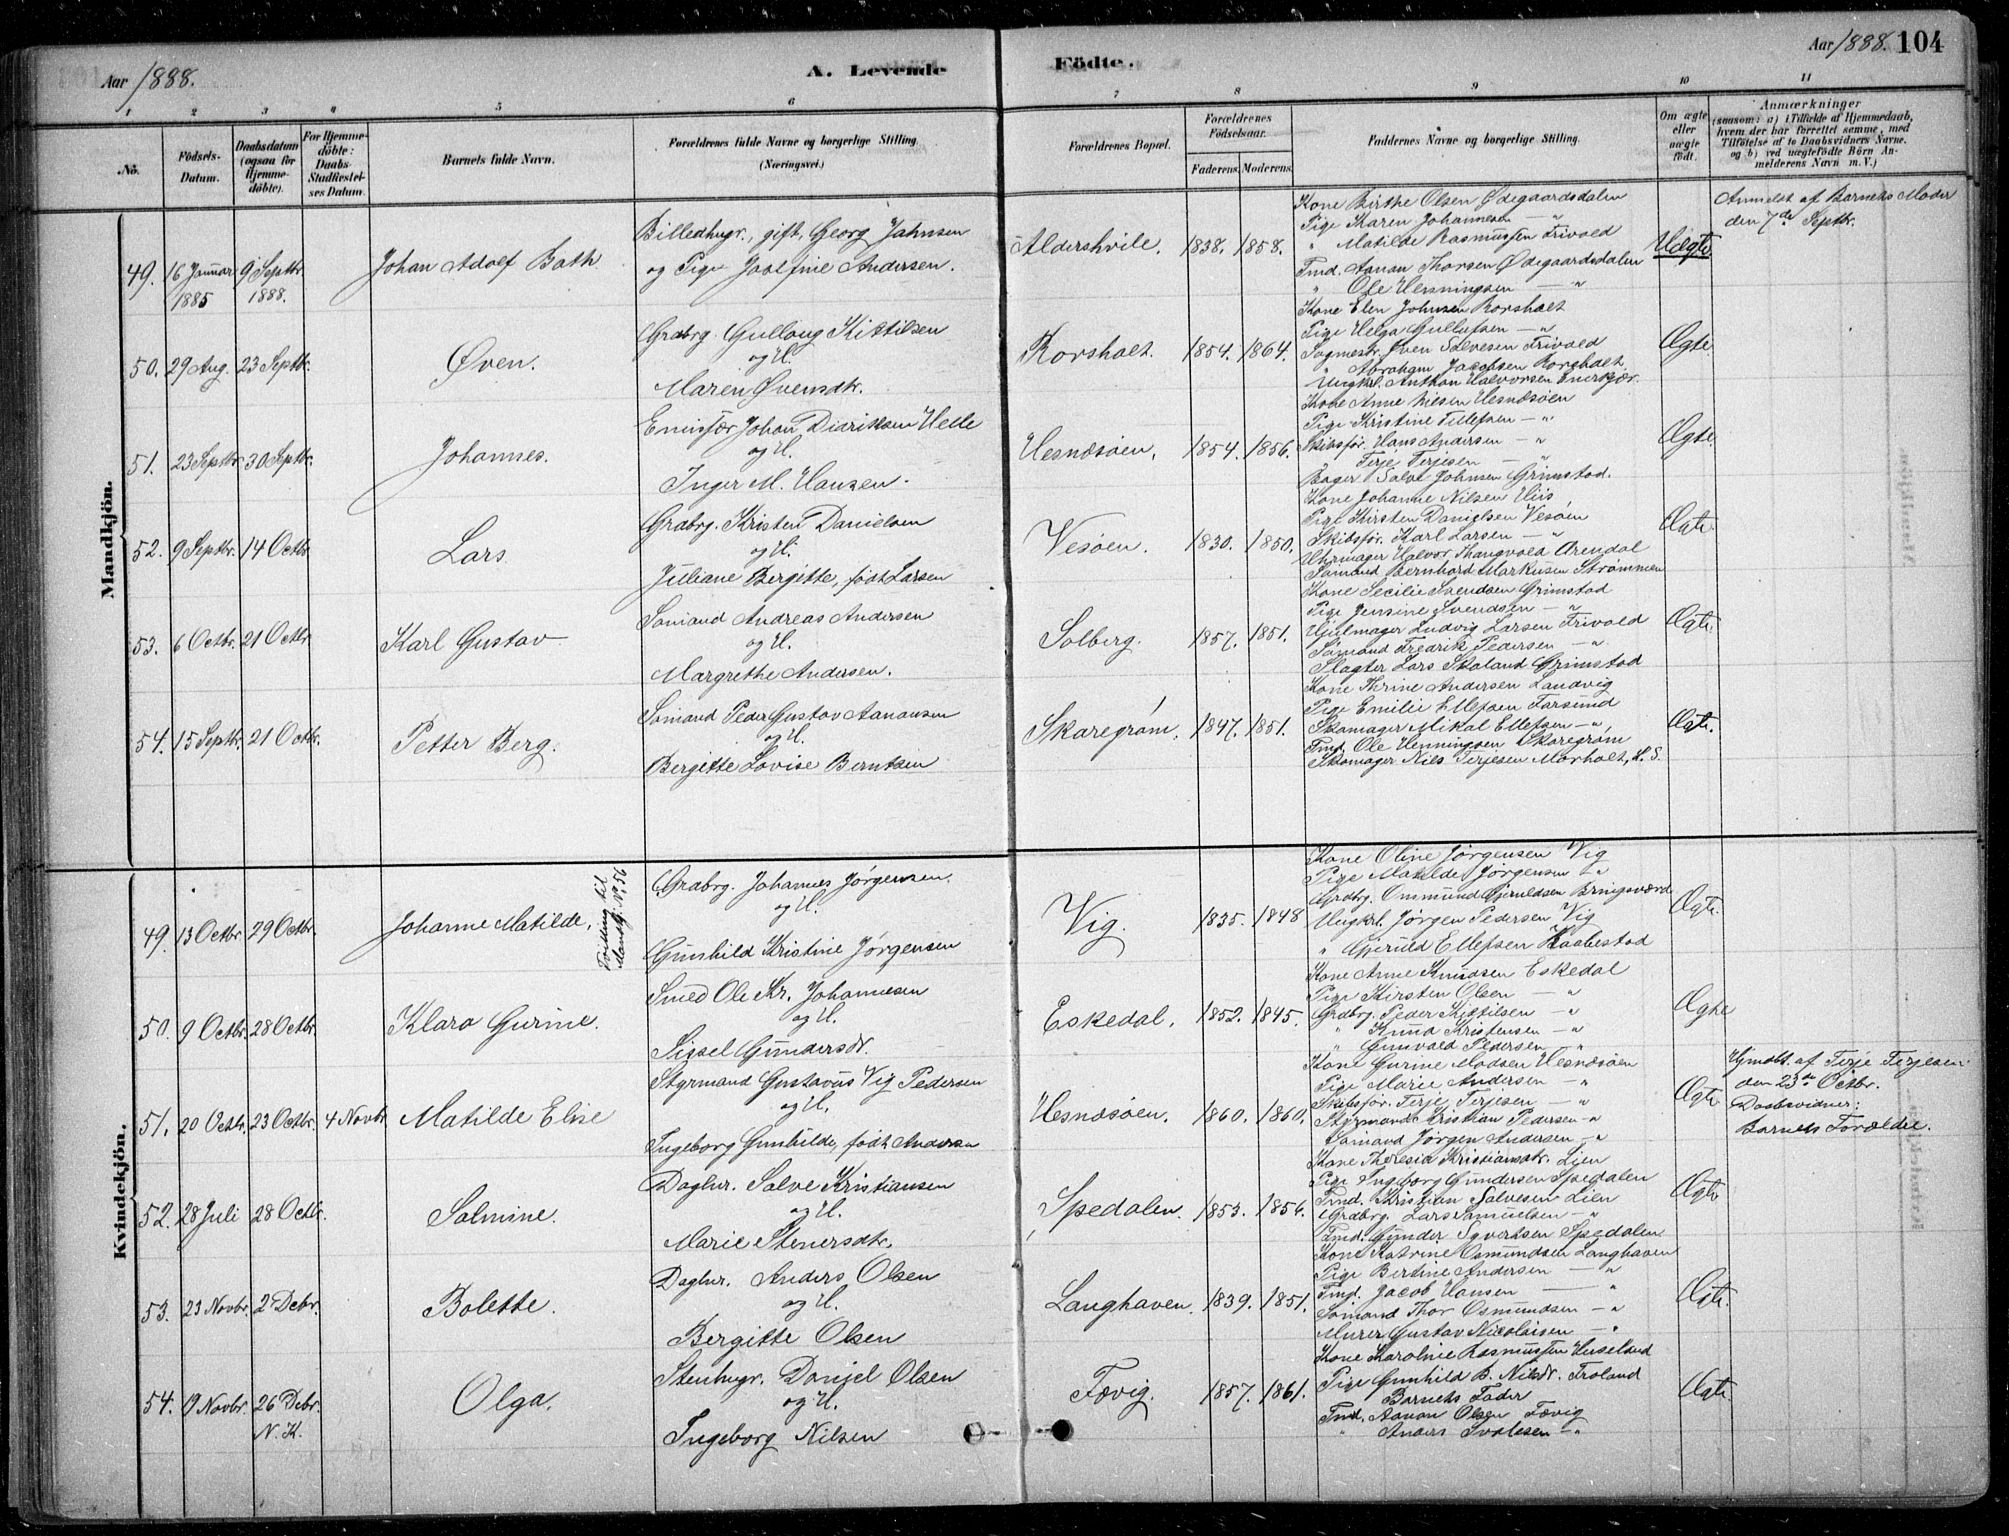 Aar 1888.
A. Levende
Födte.
Aar 1888. 104
1 2 3 4 5 6 7 8 9 10 11
No.
Födsels-Datum.
Daabsdatum (ogsaa for Hjemme-döbte).
For Hjemme-döbte: Daabs-Stadfæstel-ses Datum.
Barnets fulde Navn.
Forældrenes fulde Navne og borgerlige Stilling (Næringsvei.)
Forældrenes Bopæl.
Forældrenes Födselsaar.
Faderens. Moderens.
Faddernes Navne og borgerlige Stilling.
Om ægte eller uægte födt.
Anmærkninger
(saasom: a) i Tilfælde af Hjemmedaab, hvem der har forrettet samme, med Tilföielse af to Daabsvidners Navne. og b) ved uægtefödte Börn An-melderens Navn m. V.)
Mandkjön.
49. 16 Januar 1885 9 Septbr 1888. Johan Adolf Bath
Billedhugr., gift, Georg Jahnsen
og Pige Josefine Andersen.
Aldershvile. 1838. 1858.
Kone Birthe Olsen Ødegaardsdalen
Pige Karen Johannesen — "
" Matilde Rasmussen Frivold
Tmd. Aanon Thorsen Ødegaardsdalen
" Ole Henningsen — "
Uægte.
Anmeldt af Barnets Moder
den 7de Septbr.
50. 29 Aug. 23 Septbr. Øven.
Grdbrg. Gullaug Kittilsen
og H.
Maren Øvensdtr.
Rorsholt. 1854. 1864.
Kone Elen Johnsen Rorsholt
Pige Helga Gullufsen — "
Sogmestr. Øven Salvesen Frivold
" Abraham Jacobsen Rorsholt
Ungkl. Anthon Halvorsen Enerkjær.
Ægte.
51. 23 Septbr. 30 Septbr. Johannes.
Johan Diariksen Helle
og H.
Inger M. Hansen.
Hesnæsöen. 1854. 1856.
Kone Anne Nilsen Hesnæsöen
Pige Kristine Tellefsen — "
Skibsför. Hans Andersen — "
Terje Terjesen — "
Bager Salve Johnsen Grimstad.
Ægte.
52. 9 Septbr. 14 Octbr Lars
Grdbrg. Kristen Danielsen
og H.
Juliane Bergitte, födt Larsen
Vesöen. 1830. 1850.
Kone Johanne Nilsen Hiis
Pige Kirsten Danielsen Vesöen
Skibsför. Karl Larsen — "
Uhrmager Halvor Thangvald Arendal
Sömand Bernhard Markusen Strömmen
Ægte.
53. 6 Octbr. 21 Octbr Karl Gustav
Sömand Andreas Andersen
og H.
Margrethe Andersen.
Solberg. 1857. 1851.
Kone Secilie Svendsen Grimstad
Pige Jensine Svendsen — "
Hjulmager Ludvig Larsen Frivold
Sömand Fredrik Pedersen — "
Slagter Lars Skaland Grimstad
Ægte.
54. 15 Septbr. 21 Octbr. Petter Berg.
Sömand Peder Gustav Aanonsen
og H.
Bergitte Lovise Berntsen
Skaregröm. 1847. 1851.
Kone Thrine Andersen Landvig
Pige Emilie Ellefsen Farsund
Skomager Mikal Ellefsen — "
Tmd. Ole Henningsen Skaregröm
Skomager Nils Terjesen Morholt, L. S.
Ægte.
Kvindekjön.
49. 13 Octbr. 29 Octbr. Johanne Matilde,
Tvilling til Mandkj. No 56
Grdbrg. Johannes Jørgensen.
og H.
Gunhild Kristine Jørgensen
Vig. 1835. 1848
Kone Oline Jørgensen Vig
Pige Matilde Jørgensen — "
Grdbg. Osmund Gjeruldsen Bringsværd
Ungkl. Jørgen Pedersen Vig
" Gjeruld Ellefsen Kaabestad
Ægte.
50. 9 Octbr. 28 Octbr. Klara Gurine.
Smed Ole Kr. Johannesen
og H.
Sigsel Gundersdr.
Eskedal. 1852. 1845.
Kone Anne Knudsen Eskedal
Pige Kirsten Olsen — "
Grdbrg. Peder Kittilsen — "
" Knud Kristensen — "
" Gunvald Pedersen — "
Ægte
51. 20 Octbr. 23 Octbr. 4 Novbr Matilde Elise
Styrmand Gustavus Vig Pedersen
og H.
Ingeborg Gunhilde, födt Andersen
Hesnæsöen. 1860. 1860.
Kone Gurine Madsen Hesnæsöen
Pige Marie Andersen — "
Skibsför. Terje Terjesen — "
Styrmand Kristian Pedersen — "
Sömand Jørgen Andersen — "
Ægte
Hjmdbt. af Terje Terjesen
den 23de Octbr.
Daabsvidner:
Barnets Forældre.
52. 28 Juli 28 Octbr. Salmine.
Daglnr. Salve Kristiansen
og H.
Marie Stenersdtr.
Spedalen. 1853. 1856.
Kone Theresia Kristiansdtr. Lien
Pige Ingeborg Gundersen Spedalen
Tmd. Kristian Salvesen Lien
Grdbrg. Lars Samuelsen — "
Tmd. Gunder Syvertsen Spedalen
Ægte
53. 23 Novbr. 2 Debr. Bolette.
Daglnr. Anders Olsen
og H.
Bergitte Olsen
Langhaven. 1839. 1851.
Kone Katrine Osmundsen Langhaven
Pige Bertine Andersen — "
Tmd. Jacob Hansen — "
Sömand Thor Osmundsen — "
Murer Gustav Nicolaisen — "
Ægte.
54. 19 Novbr. 26 Debr. N. K. Olga.
Stenhugr. Daniel Olsen
og H.
Ingeborg Nilsen
Fævig. 1857. 1861.
Kone Karoline Rasmussen Huseland
Pige Gunhild B. Nilsdr. Froland
Barnets Fader
Tmd. Aanon Olsen Fævig
" Anders — "
Ægte.